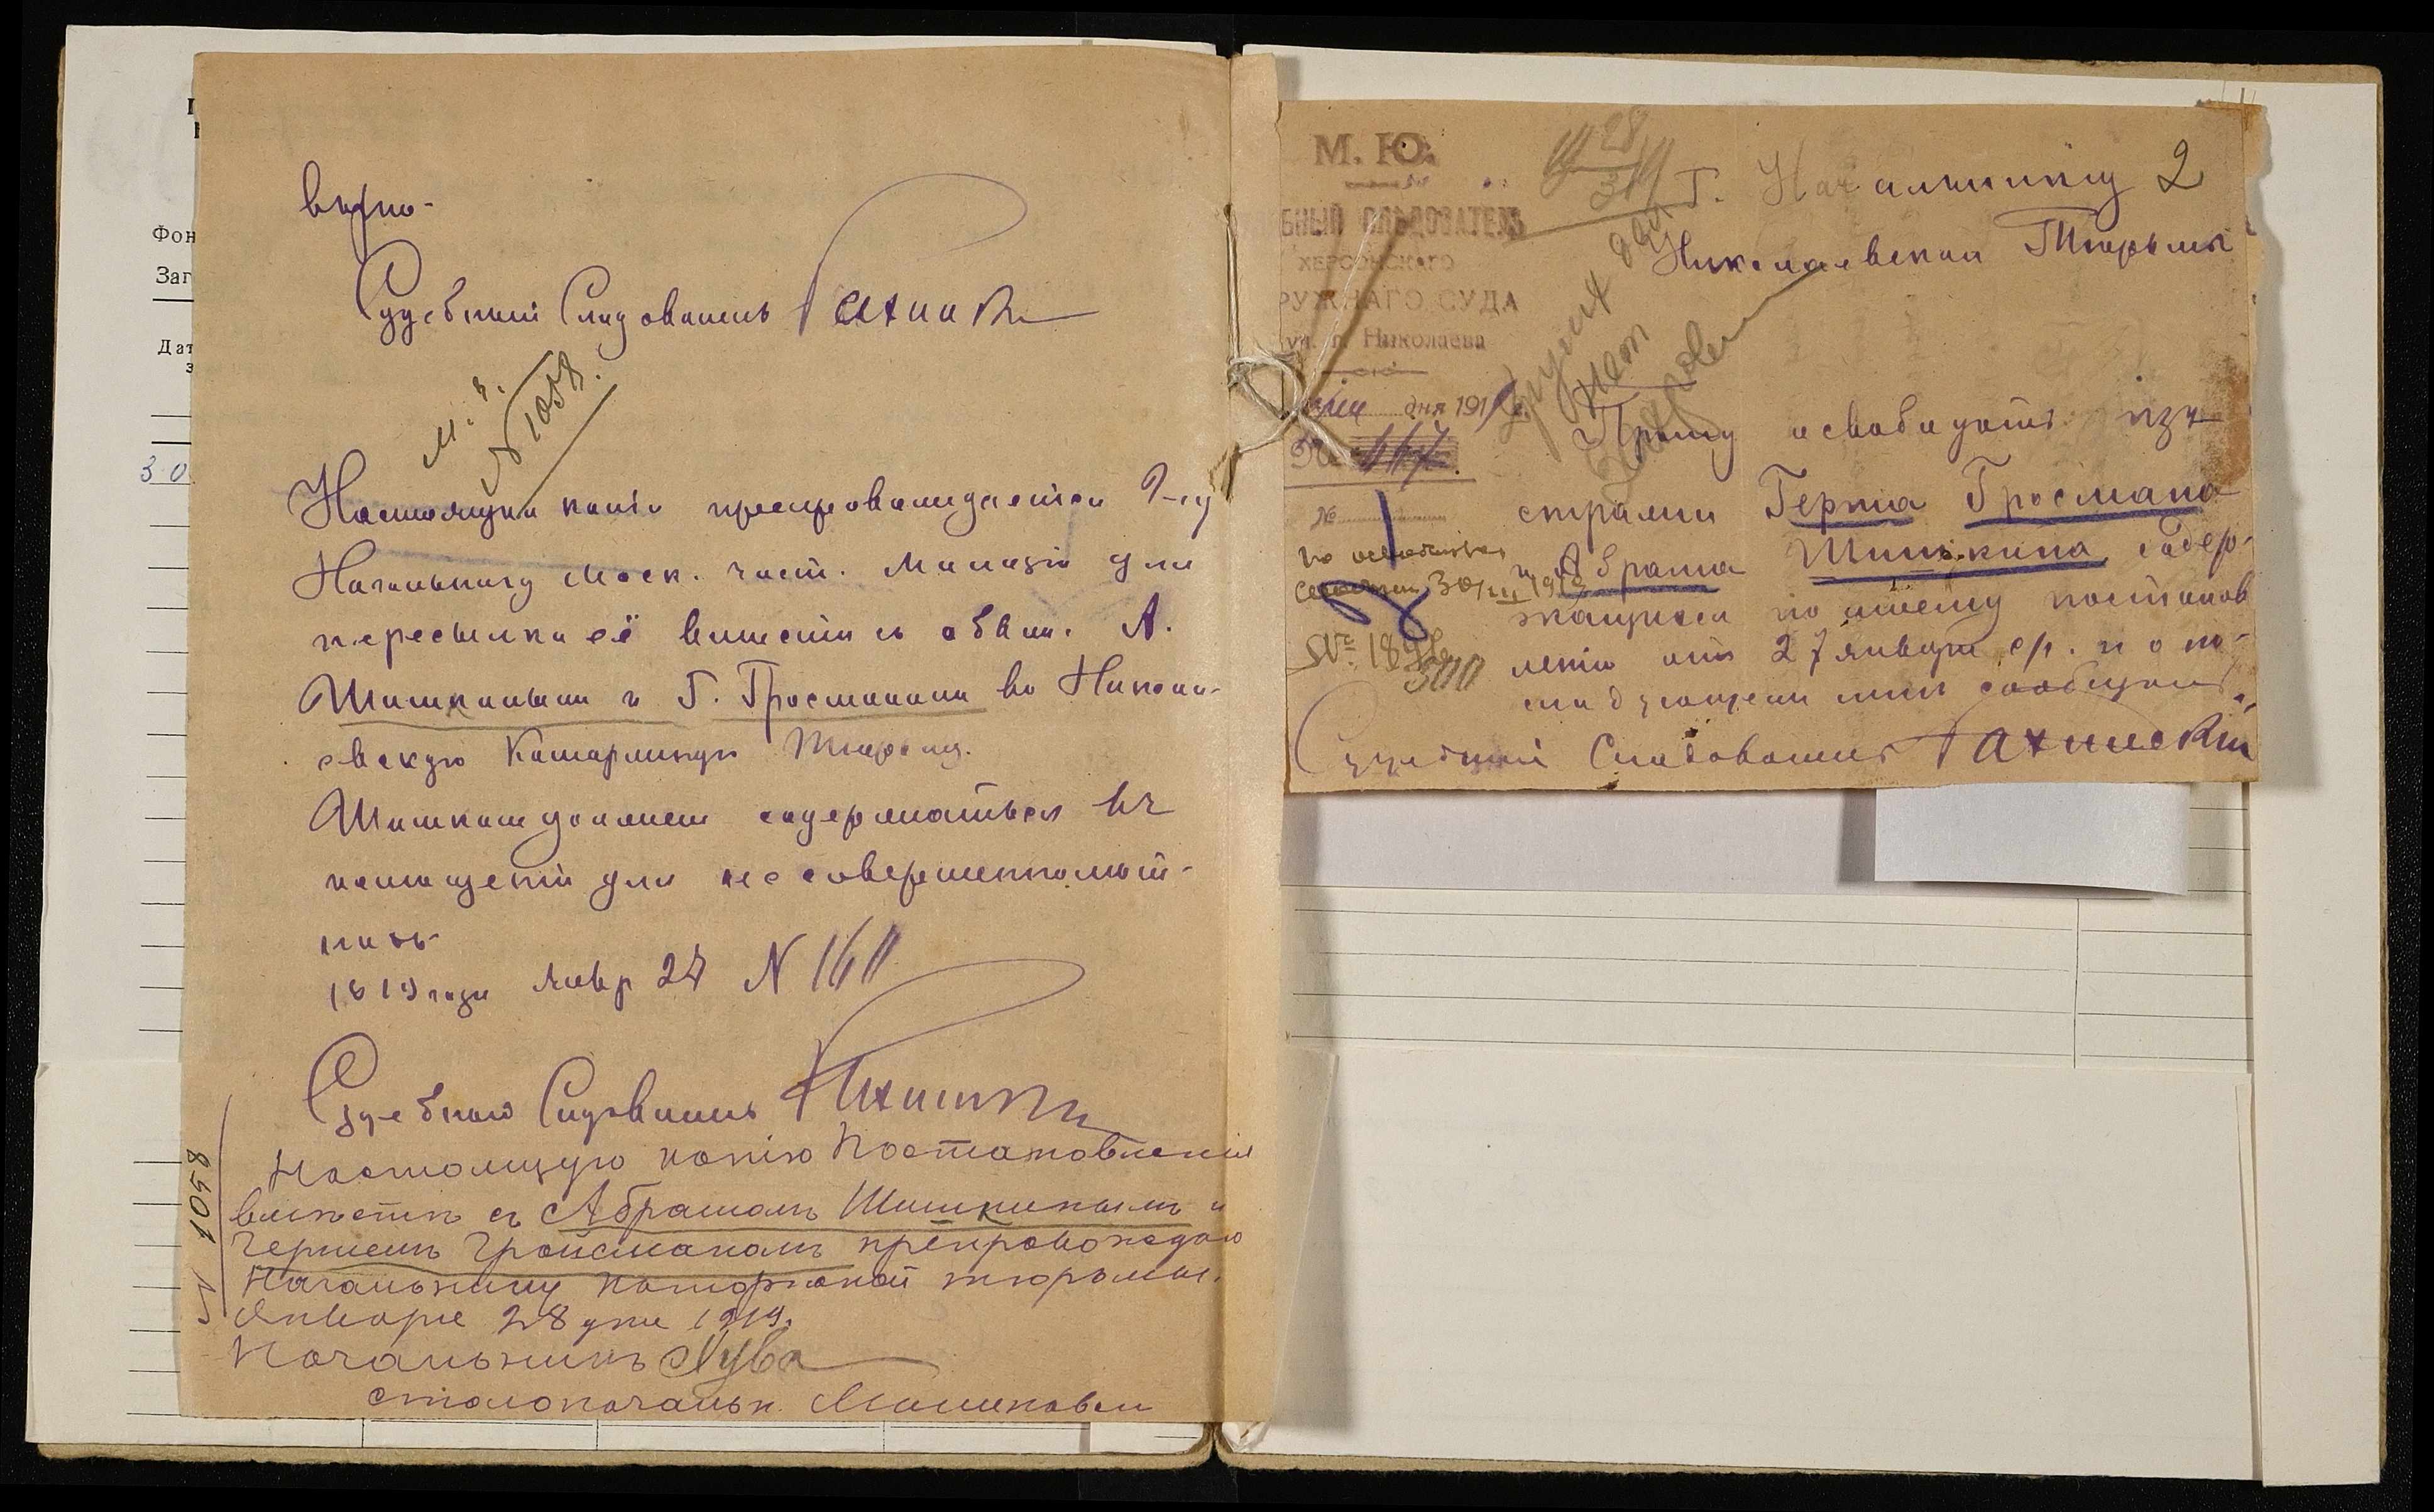 вѣрно.
Судебный Слѣдователь
М. Ч.
N 1058.
Настоящая копія препровождается Г-ну
Начальнику Моск. част. Милиціи для
пересылки её вмѣстѣ съ обвин. А.
Шишкинымъ и Г. Гросманомъ въ Никола-
евскую Каторжную Тюрьму.
Шишкин долженъ содержаться въ
помѣщеніи для несовершеннолѣт-
нихъ
1919 года Январ 27 N 160
Судебный Слѣдователь
Настоящую копію Постановленія
вмѣстѣ съ Абрамомъ Шишкинымъ и
Гершемъ Гройсманомъ препровождаю
Начальнику каторжной тюрьмы.
Января 28 дня 1919.
Начальникъ
столоначальн.
N 1058
Фон
Заг
Дат
з
30
М. Ю.
БНЫЙ СЛѢДОВАТЕЛЬ
ХЕРСОНСКАГО
РУЖНАГО СУДА
уч. г. Николаева
дня 191
№ 447
№
по освобожден
30/III 1919
№ 18
500
28
3
2
Г. Начальнику
Николаевской Тюрьмы
Прошу освободить изъ
стражи Герша Гросмана
и Абрама Шишкина, содер-
жащихся по моему постанов
ленію отъ 27 января с/г. и о по-
слѣдующемъ мнѣ сообщить.
Судебный Слѣдователь